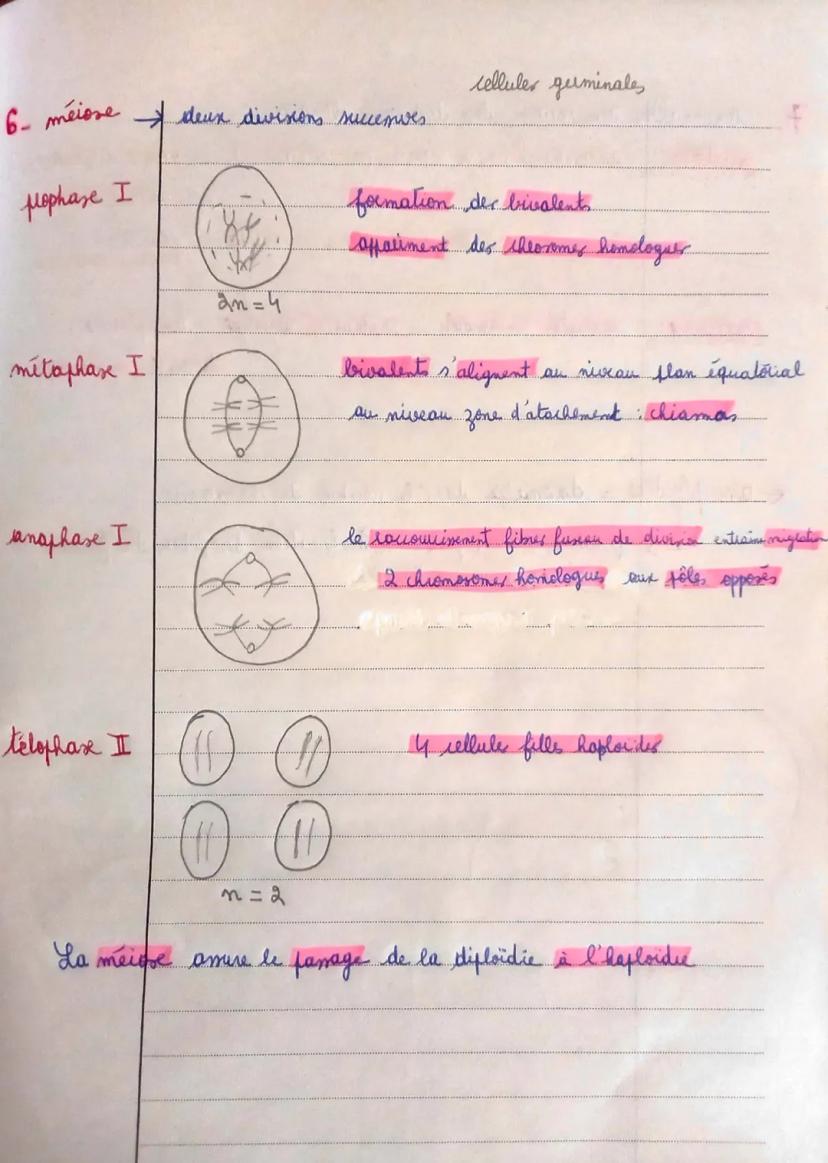 cellules germinales
6- méiose → deux divisions successives
prophase I
formation des bivalents
appariment des chrosomes homologues
2n = 4
métaphase I
bivalents s'alignent au niveau plan équatorial
au niveau zone d'atachement : chiasmas
anaphase I
le raccourcissement fibres fuseau de division entraine migration
2 chromosomes homologues aux pôles opposés
télophase II
4 cellules filles haploides
n = 2
La méiose assure le passage de la diploïdie à l'haploïdie